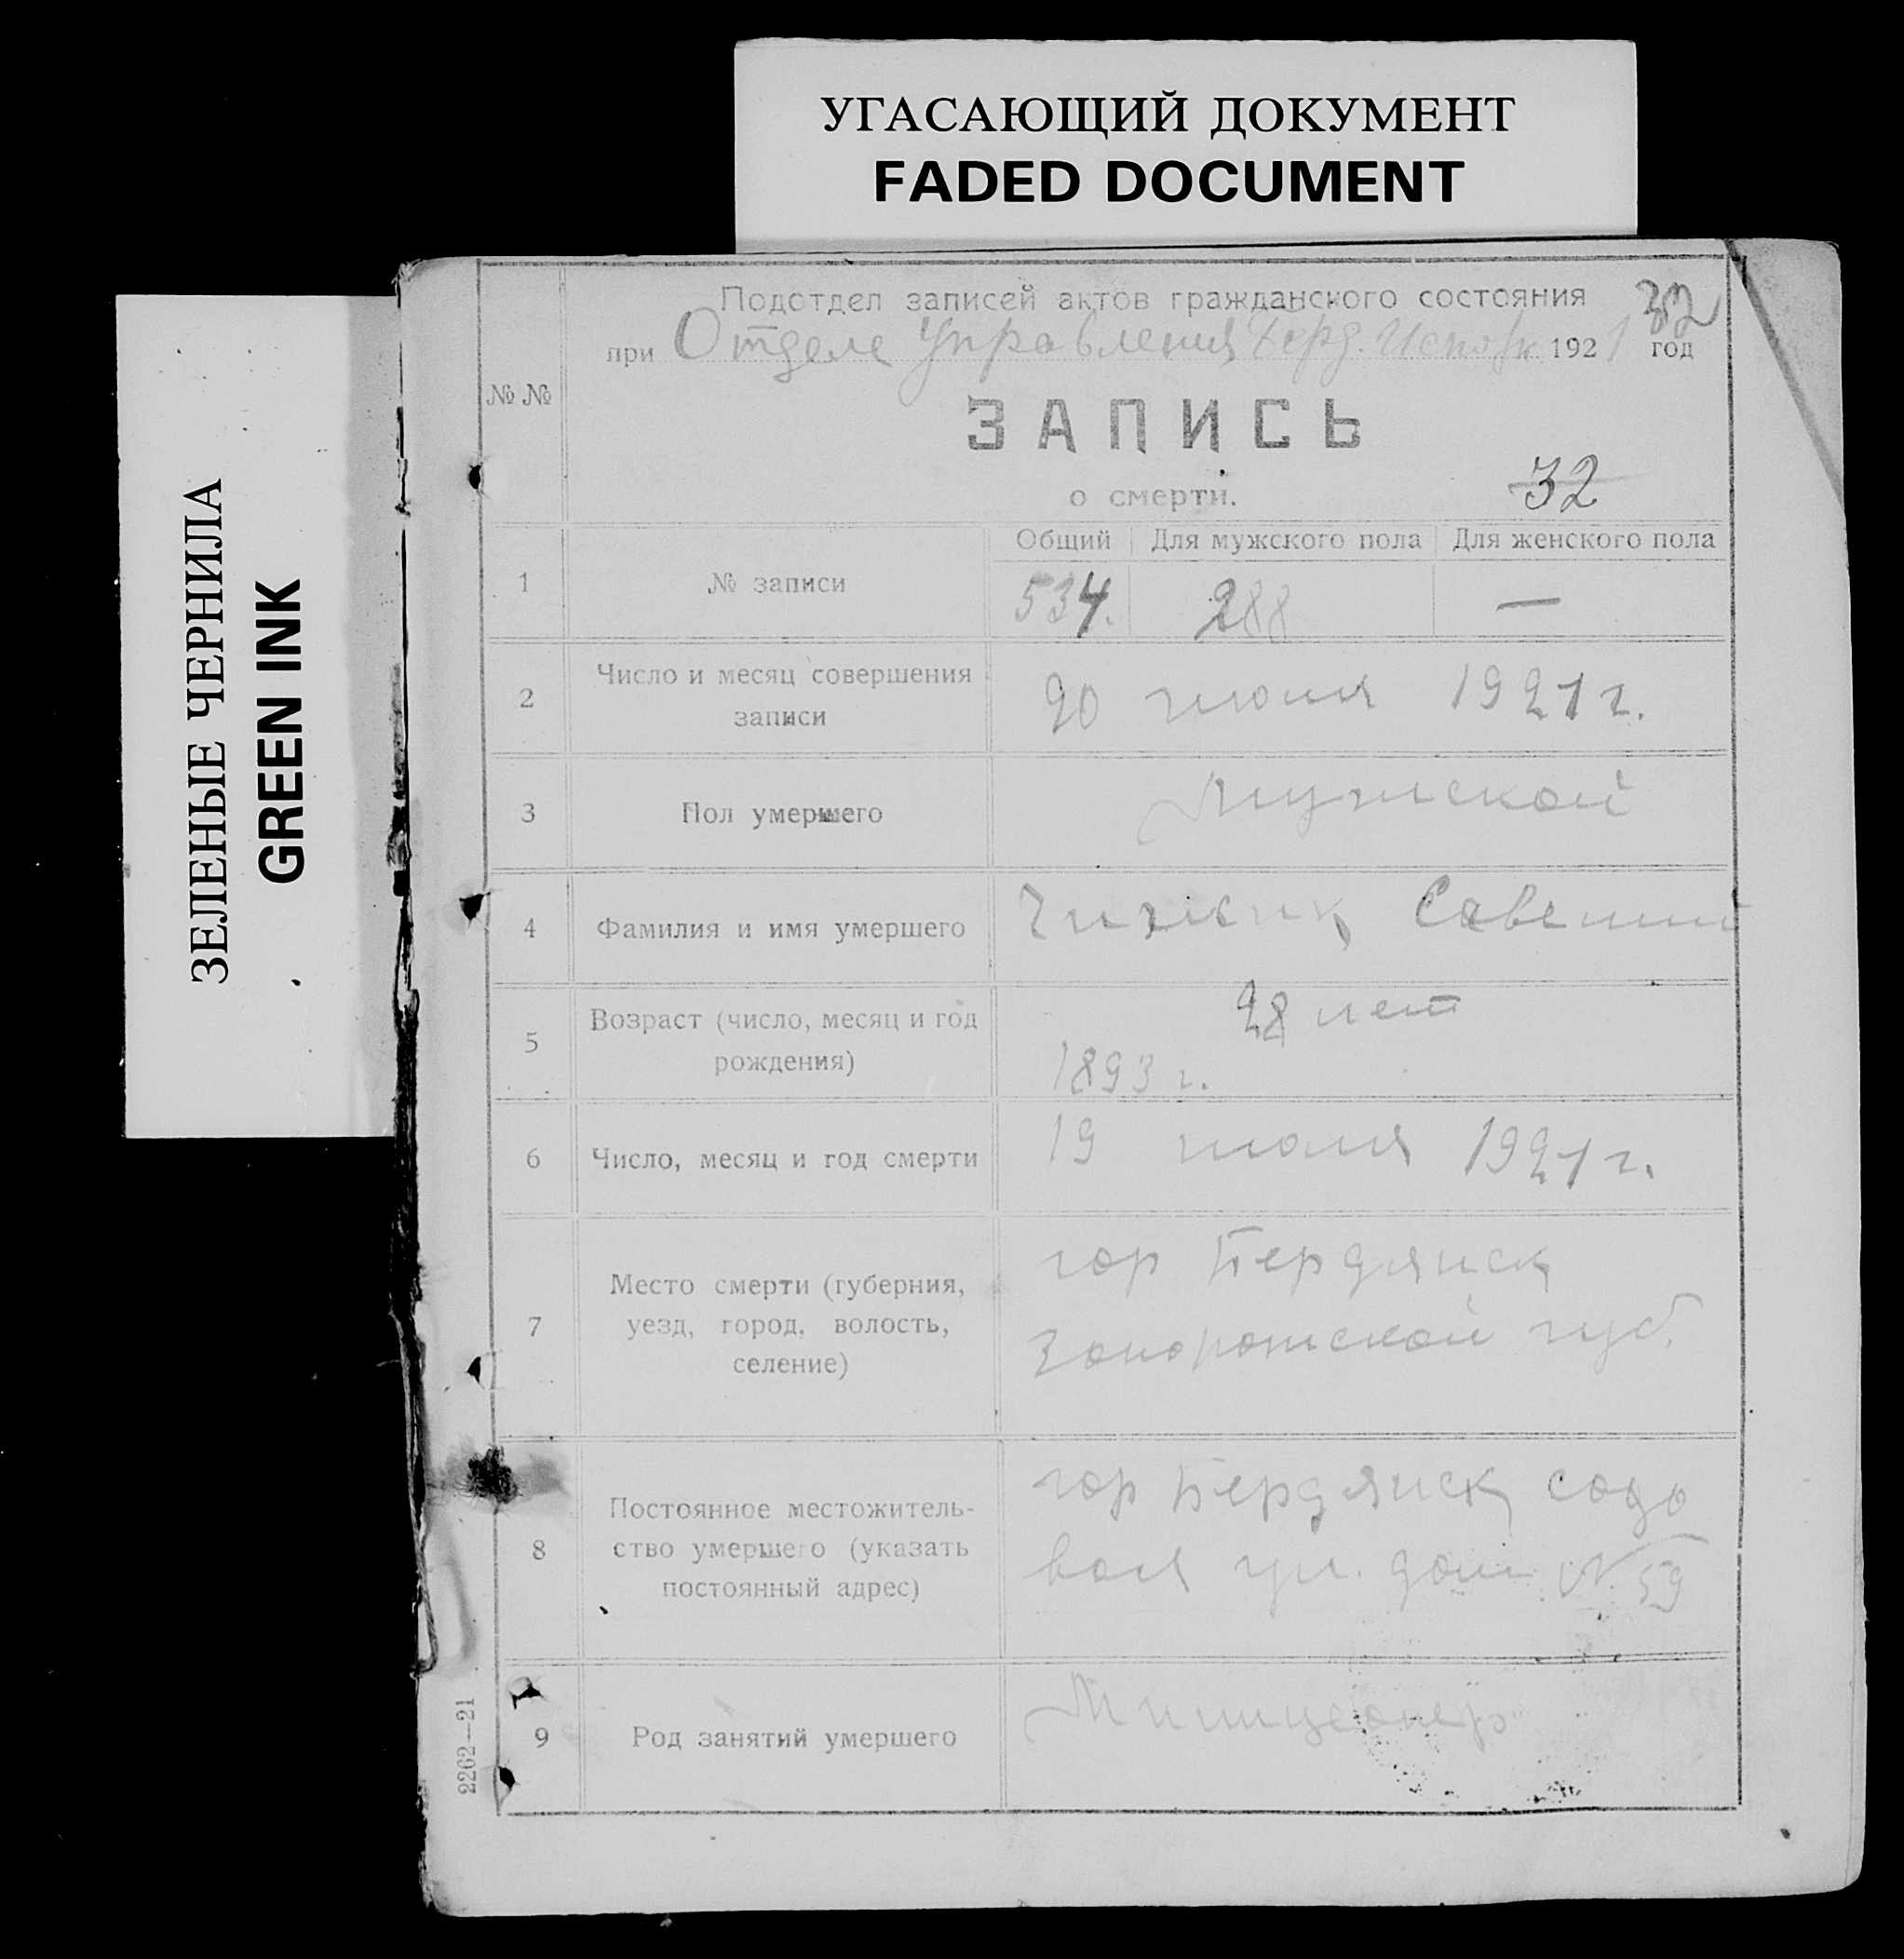 УГАСАЮЩИЙ ДОКУМЕНТ
FADED DOCUMENT
ЗЕЛЕНЫЕ ЧЕРНИЛА
GREEN INK
Подотдел записей актов гражданского состояния
32
при Отделе Управления Берд. Исполк. 1921 год
№ №
ЗАПИСЬ
о смерти.
32
Общий Для мужского пола Для женского пола
1 № записи 534. 288 —
2 Число и месяц совершения
записи
20 июля 1921 г.
3 Пол умершего Мужской
4 Фамилия и имя умершего Чижик
5 Возраст (число, месяц и год
рождения)
28 лет
1893 г.
6 Число, месяц и год смерти 19 июля 1921 г.
7 Место смерти (губерния,
уезд, город, волость,
селение)
гор Бердянск
Запорожской губ.
8 Постоянное местожитель-
ство умершего (указать
постоянный адрес)
гор Бердянск
вая ул. дом № 59
9 Род занятий умершего Милицеонер
2262—21